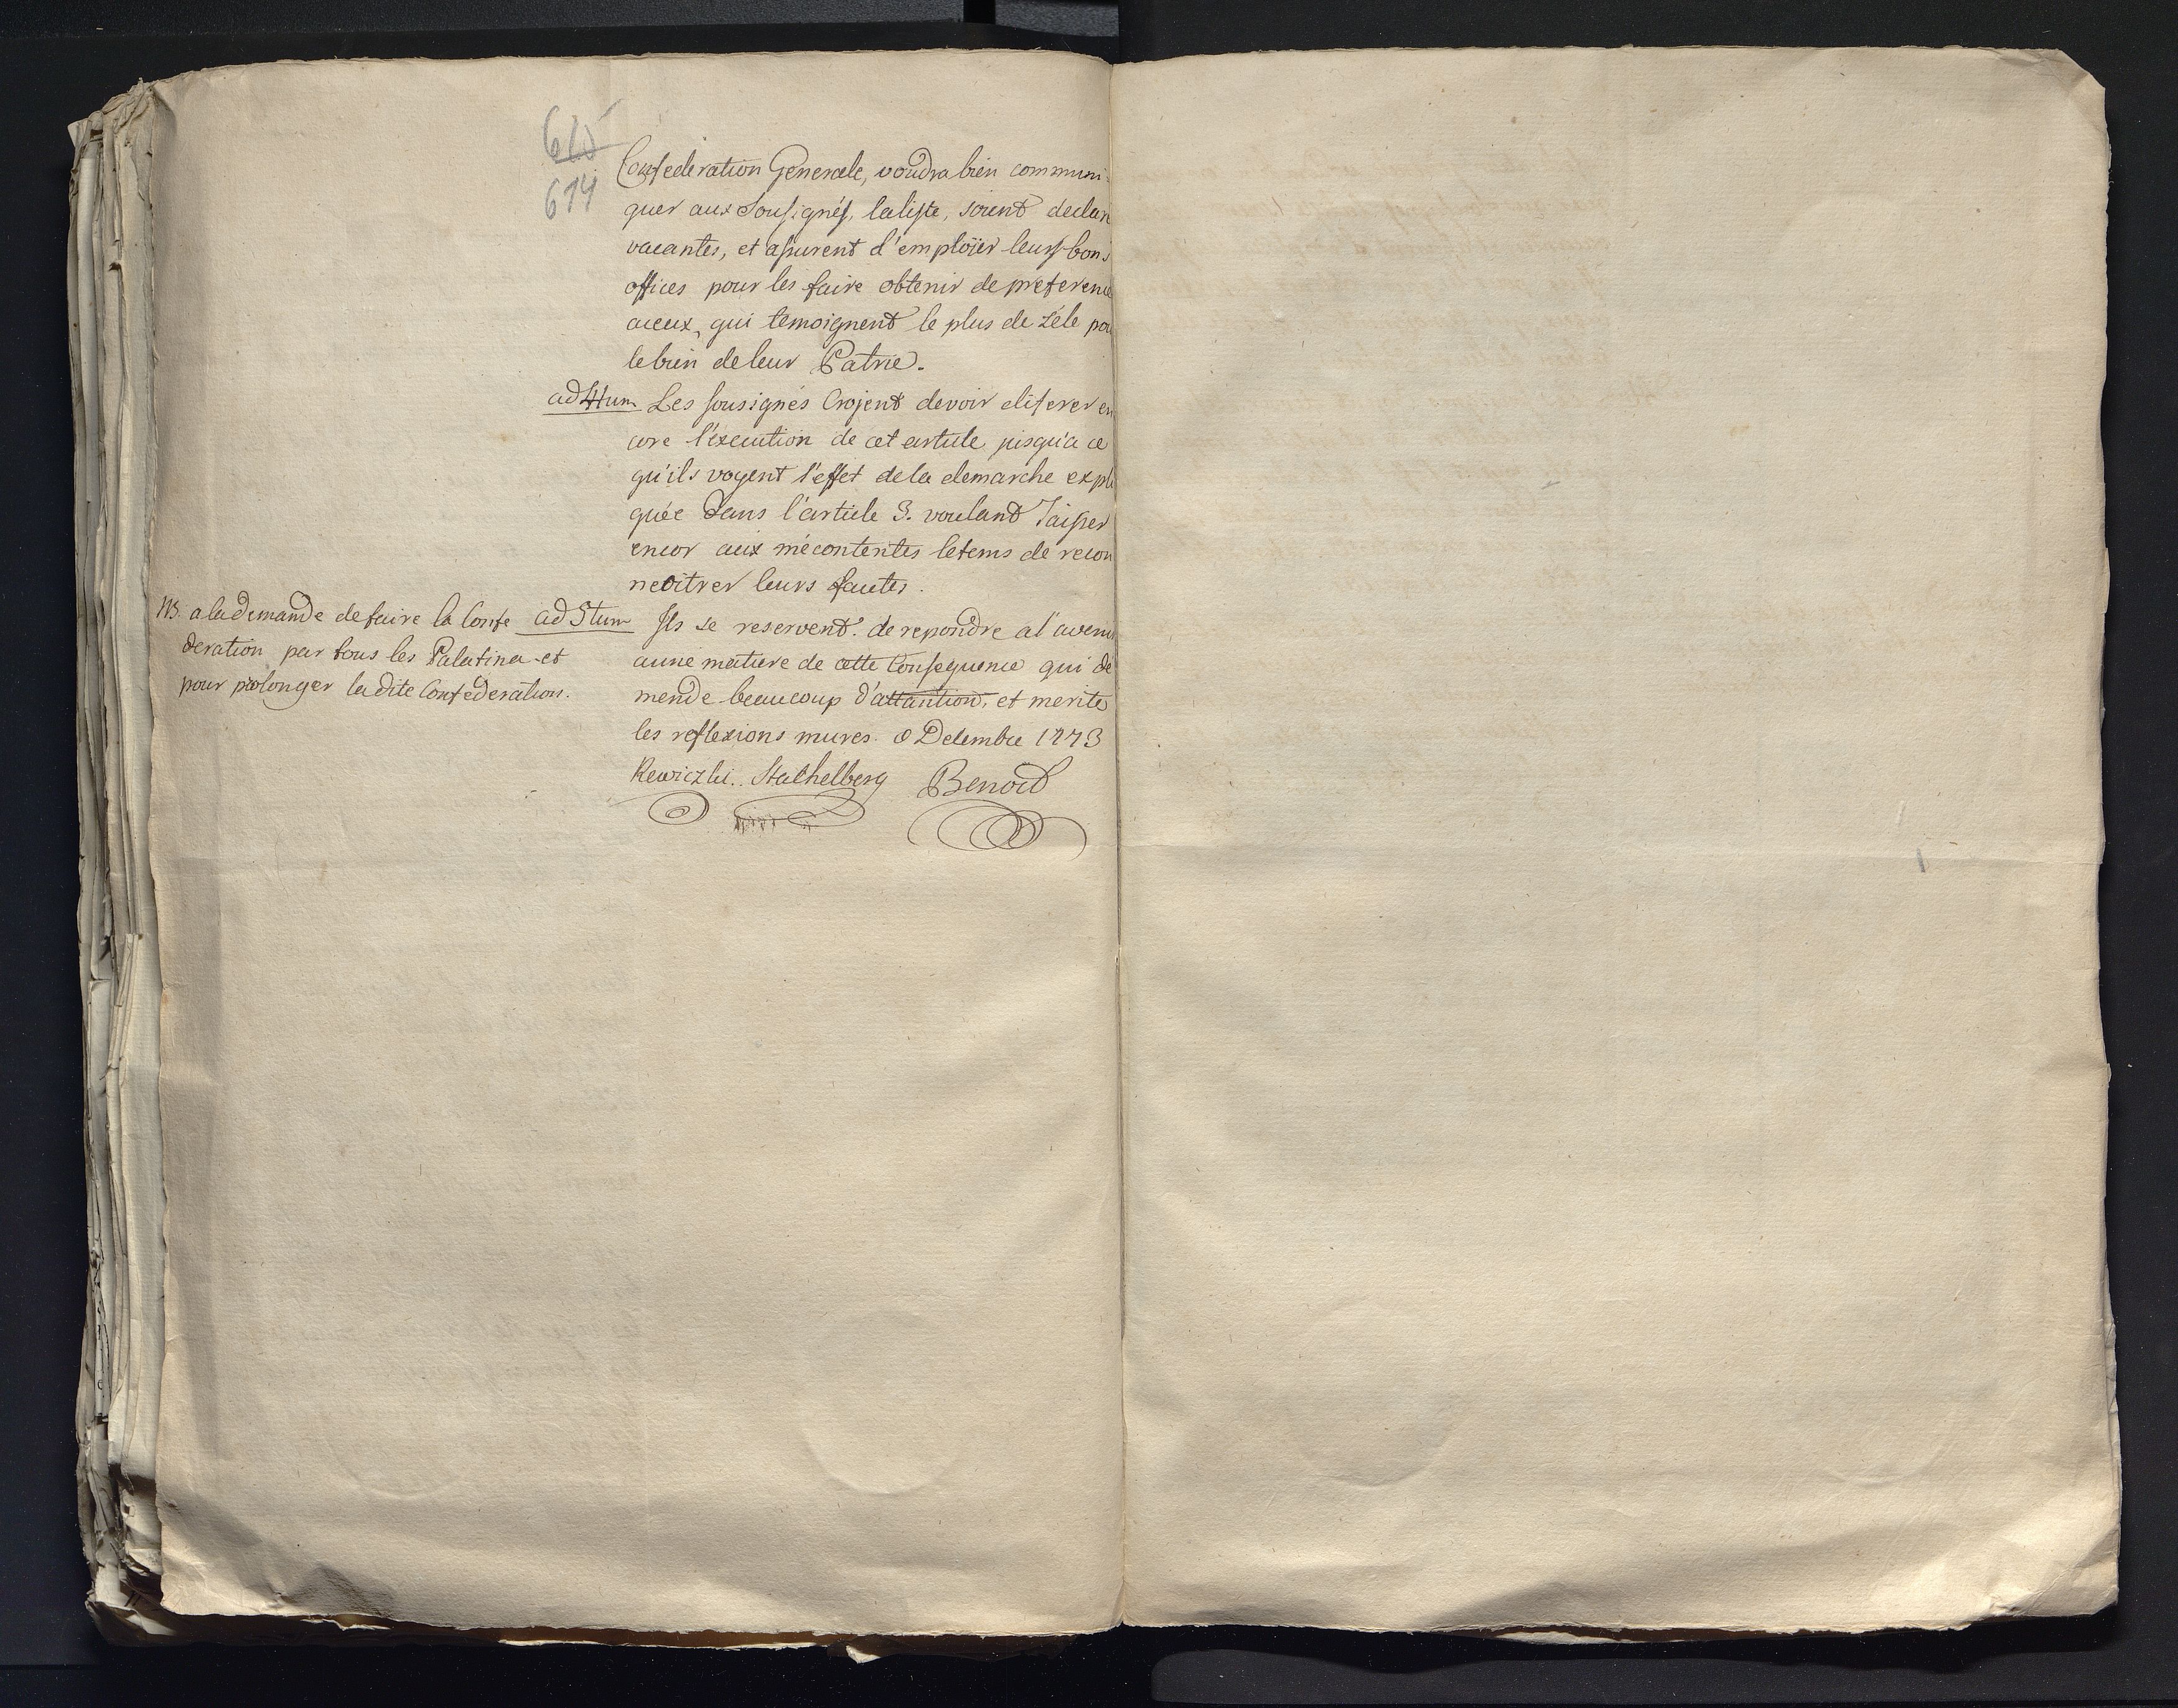 615
614
Confederation Generale, voudra bien communi-
quer aux Sousignés, la liste, soient declar
vacantes, et assurent d'emploïer leurs bons
offices pour les faire obtenir de preference
aceux, qui temoignent le plus de zéle pou
le bien de leur Patrie.
ad 4tum Les sousignés Crojent devoir diferer en
core l'execution de cet article jusqu'a ce
qu'ils voyent l'effet de la demarche expli
quée dans l'article 3. voulant laisser
encor aux mécontentes letems de recon
naitrer leurs fautes.
NB. a la demande de faire la Confe
deration par tous les Palatina et
pour prolonger la dite Confederation.
ad 5tum Ils se reservent. de repondre al'avenir
aune matiere de cette Consequence qui de
mende beaucoup d'attantion, et merite
les reflexions mures. 8 Decembre 1773
Rewiczki. Stachelberg Benoit